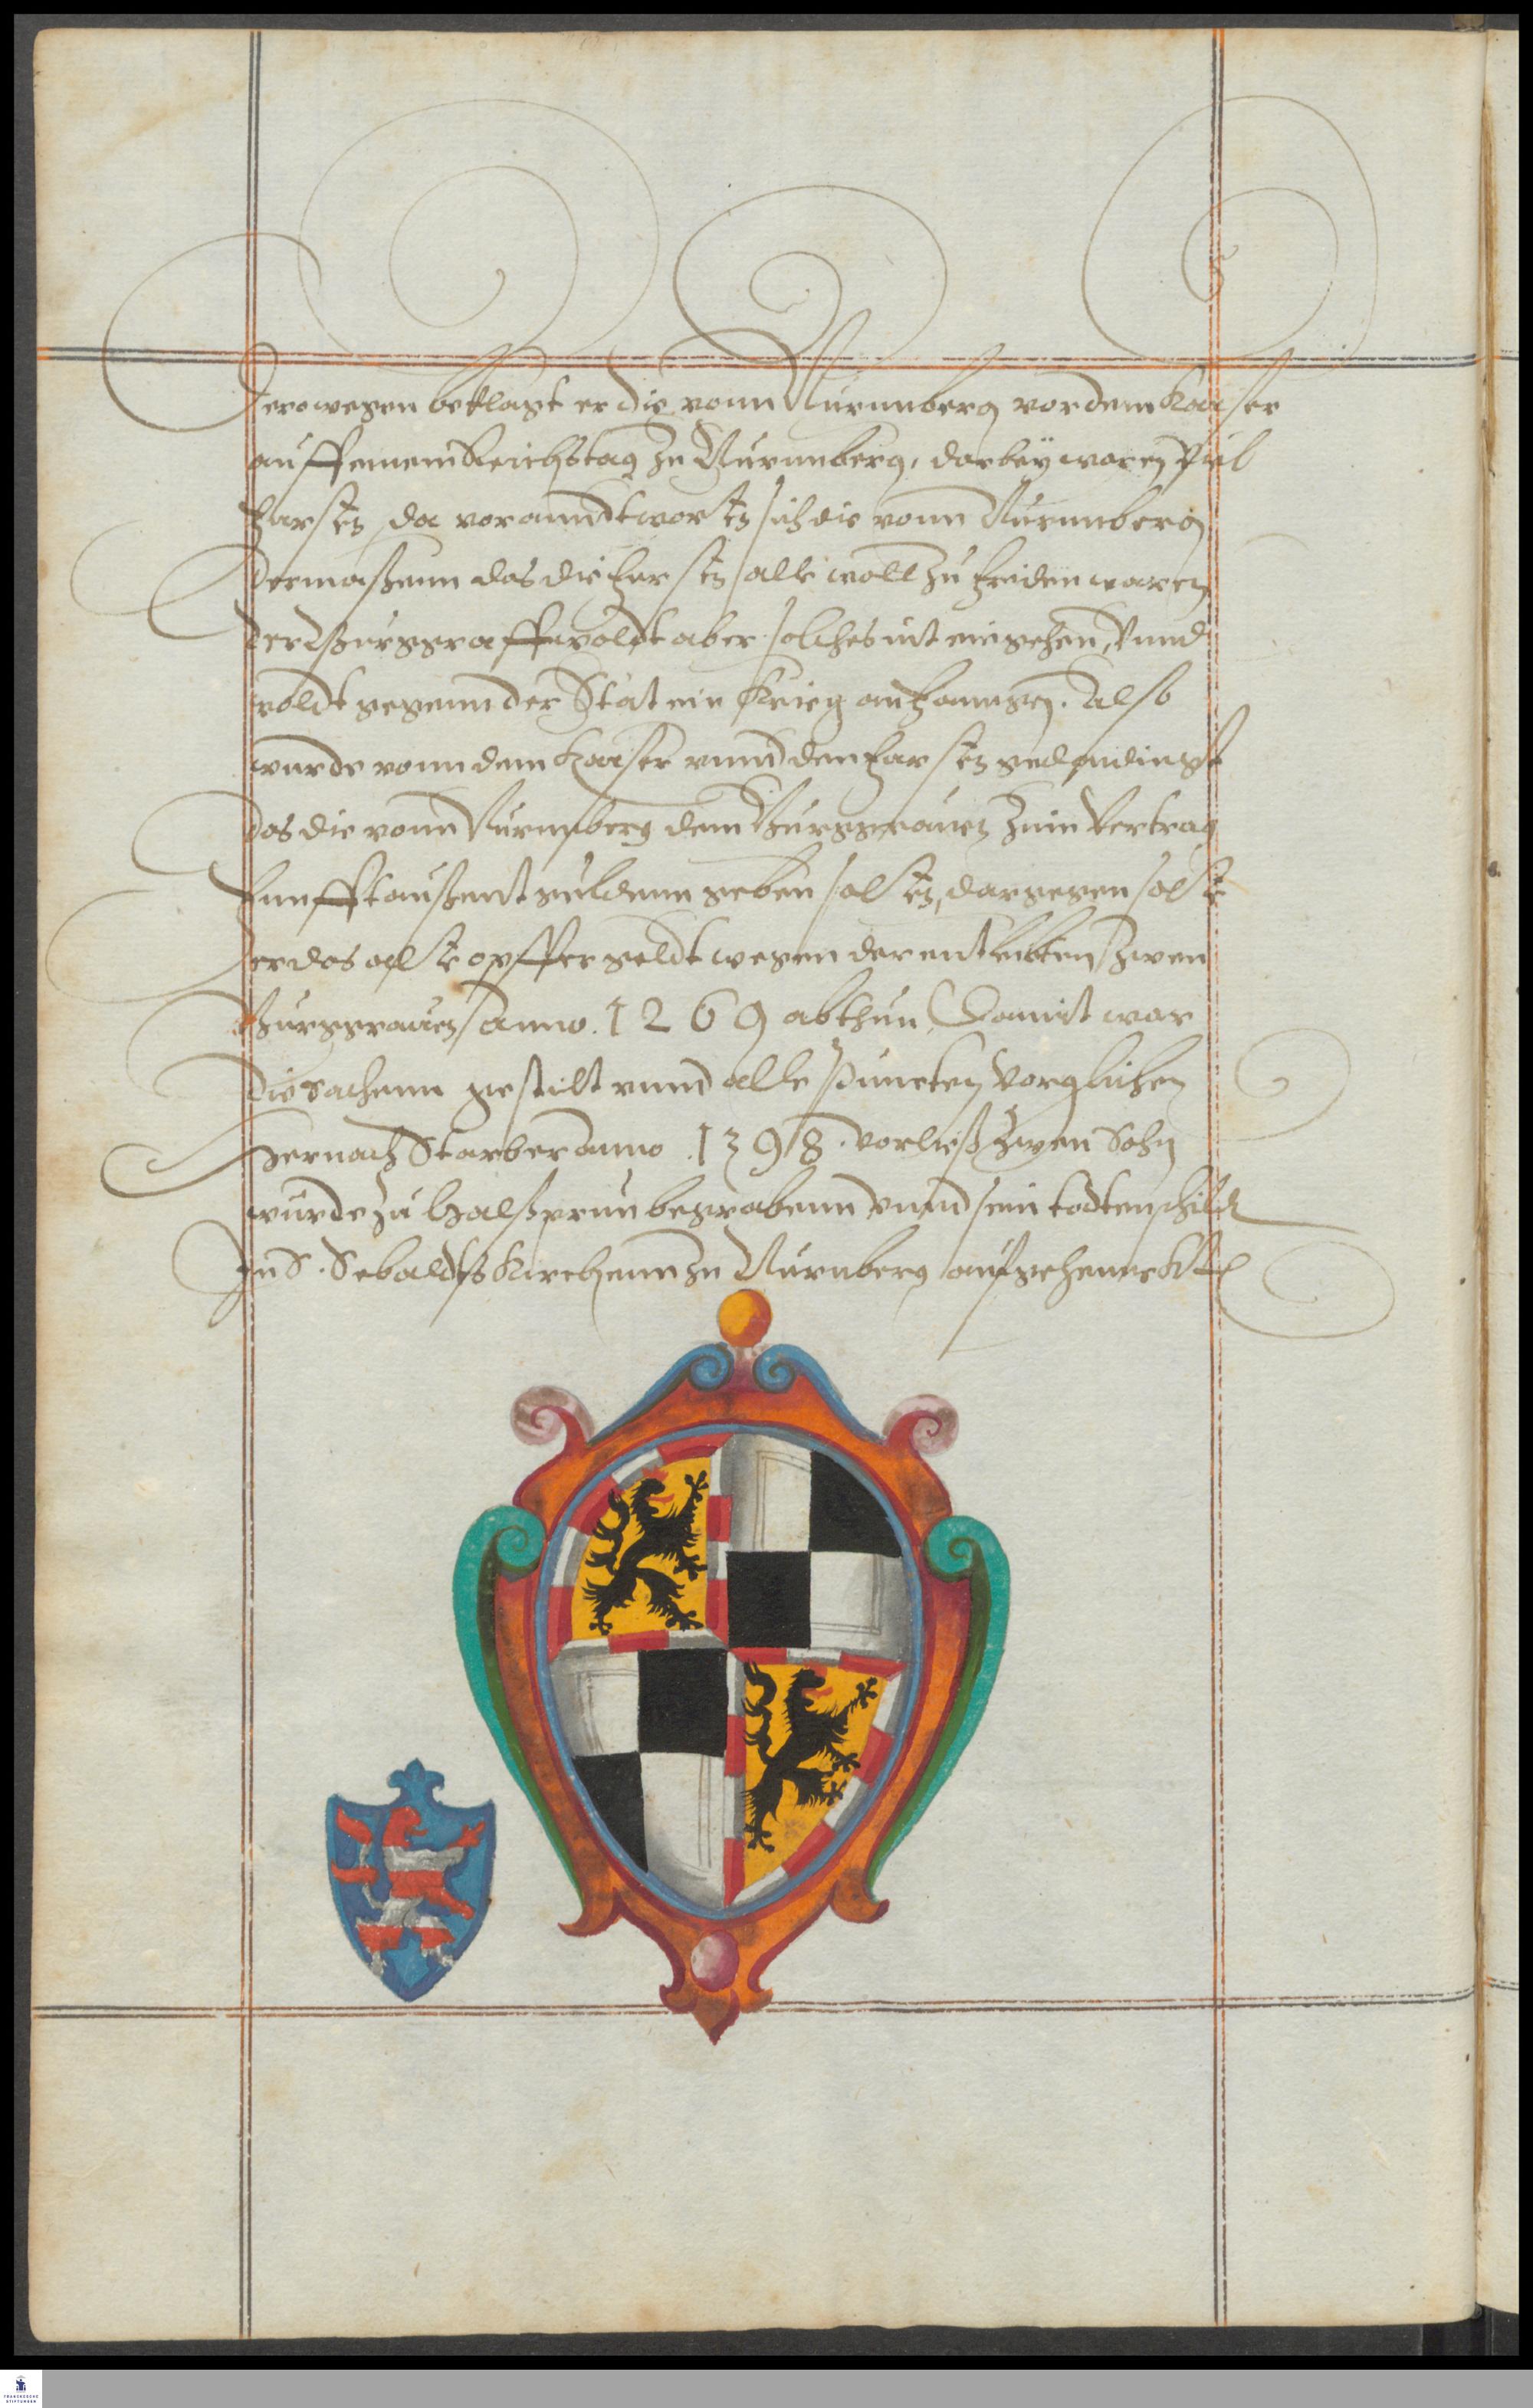 Derowegen beklagt er die vonn Nürmnberg vor dem Kaiser
auff einem Reichstag zu Nürmnberg, darbeÿ waren Viel
Fürsten, da voranndtworten sich die vonn Nürmnberg
dermaßenn das die Fürsten alle woll zu friden waren
der Burggraff woldt aber solches nit eingehen, Vnnd
woldt gegenn der Stat ein Krieg anfanngen. Also
wurde vonn dem Kaiser vnnd den Fürsten gedendingt
das die vonn Nürmberg dem Burggrauen zum Vertrag
Funfftaußent guldenn geben solten, dargegen solte
er das alte opffergeldt wegen der entleibten zwen
Burggrauen anno. 1269 abthun, Damit war
die Sachenn gestilt vnnd alle Puncten Vorglichen
Hernach Starb er anno .1398. vorließ Zwen Sohn
wurde zu Halßprun begrabenn vnnd sein todtenschilt
In S. Sebaldtß Kirchenn zu Nürnberg aufgehennckt